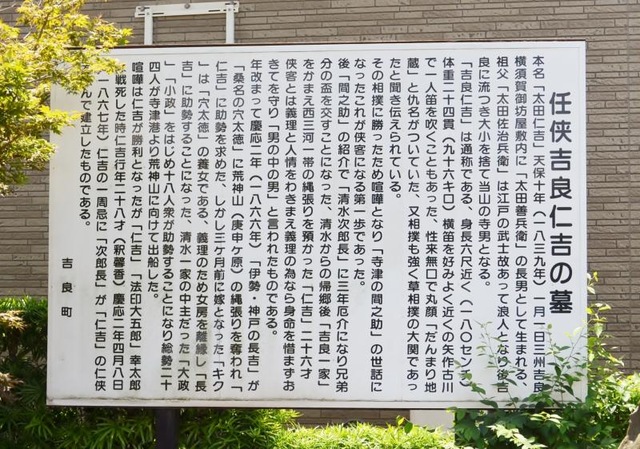 任侠吉良仁吉の墓
本名「太田仁吉」天保十年（一八三九年）一月一日三州吉良
横須賀御坊屋敷内に「太田善兵衛」の長男として生まれる、
祖父「太田佐治兵衛」は江戸の武士故あって浪人となり後吉
良に流つき大小を捨て当山の寺男となる。
「吉良仁吉」は通称である、身長六尺近く（一八〇センチ）
体重二十四貫（九十六キロ）横笛を好みよく近くの矢作古川
で一人笛を吹くこともあった、性来無口で丸顔「だんまり地
蔵」と仇名がついていた、又相撲も強く草相撲の大関であっ
たと聞き伝えられている。
その相撲に勝ったため喧嘩となり「寺津の間之助」の世話に
なったこれが侠客になる第一歩であった。
後「間之助」の紹介で「清水次郎長」に三年厄介になり兄弟
分の盃を交すことになった、清水からの帰郷後「吉良一家」
をかまえ西三河一帯の縄張りを預かった「仁吉」二十六才
侠客とは義理と人情をわきまえ義理の為なら身命を惜まずお
きてを守り「男の中の男」と言われたものである。
年改まって慶応二年（一八六六年）「伊勢・神戸の長吉」が
「桑名の穴太徳」に荒神山（庚申ケ原）の縄張りを奪われ「
仁吉」に助勢を求めた、しかし三ケ月前に嫁となった「キク
」は「穴太徳」の養女である、義理のため女房を離縁し「長
吉」に助勢することになった、清水一家の中主だった「大政
」「小政」をはじめ十八人衆が助勢することになり総勢二十
四人が寺津港より荒神山に向けて出船した。
喧嘩は仁吉が勝利となったが「仁吉」「法印大五郎」幸太郎
戦死した時仁吉行年二十八才（釈馨香）慶応二年四月八日
一八六七年）仁吉の一周忌に「次郎長」が「仁吉」の仁侠
んで建立したものである。
吉良町